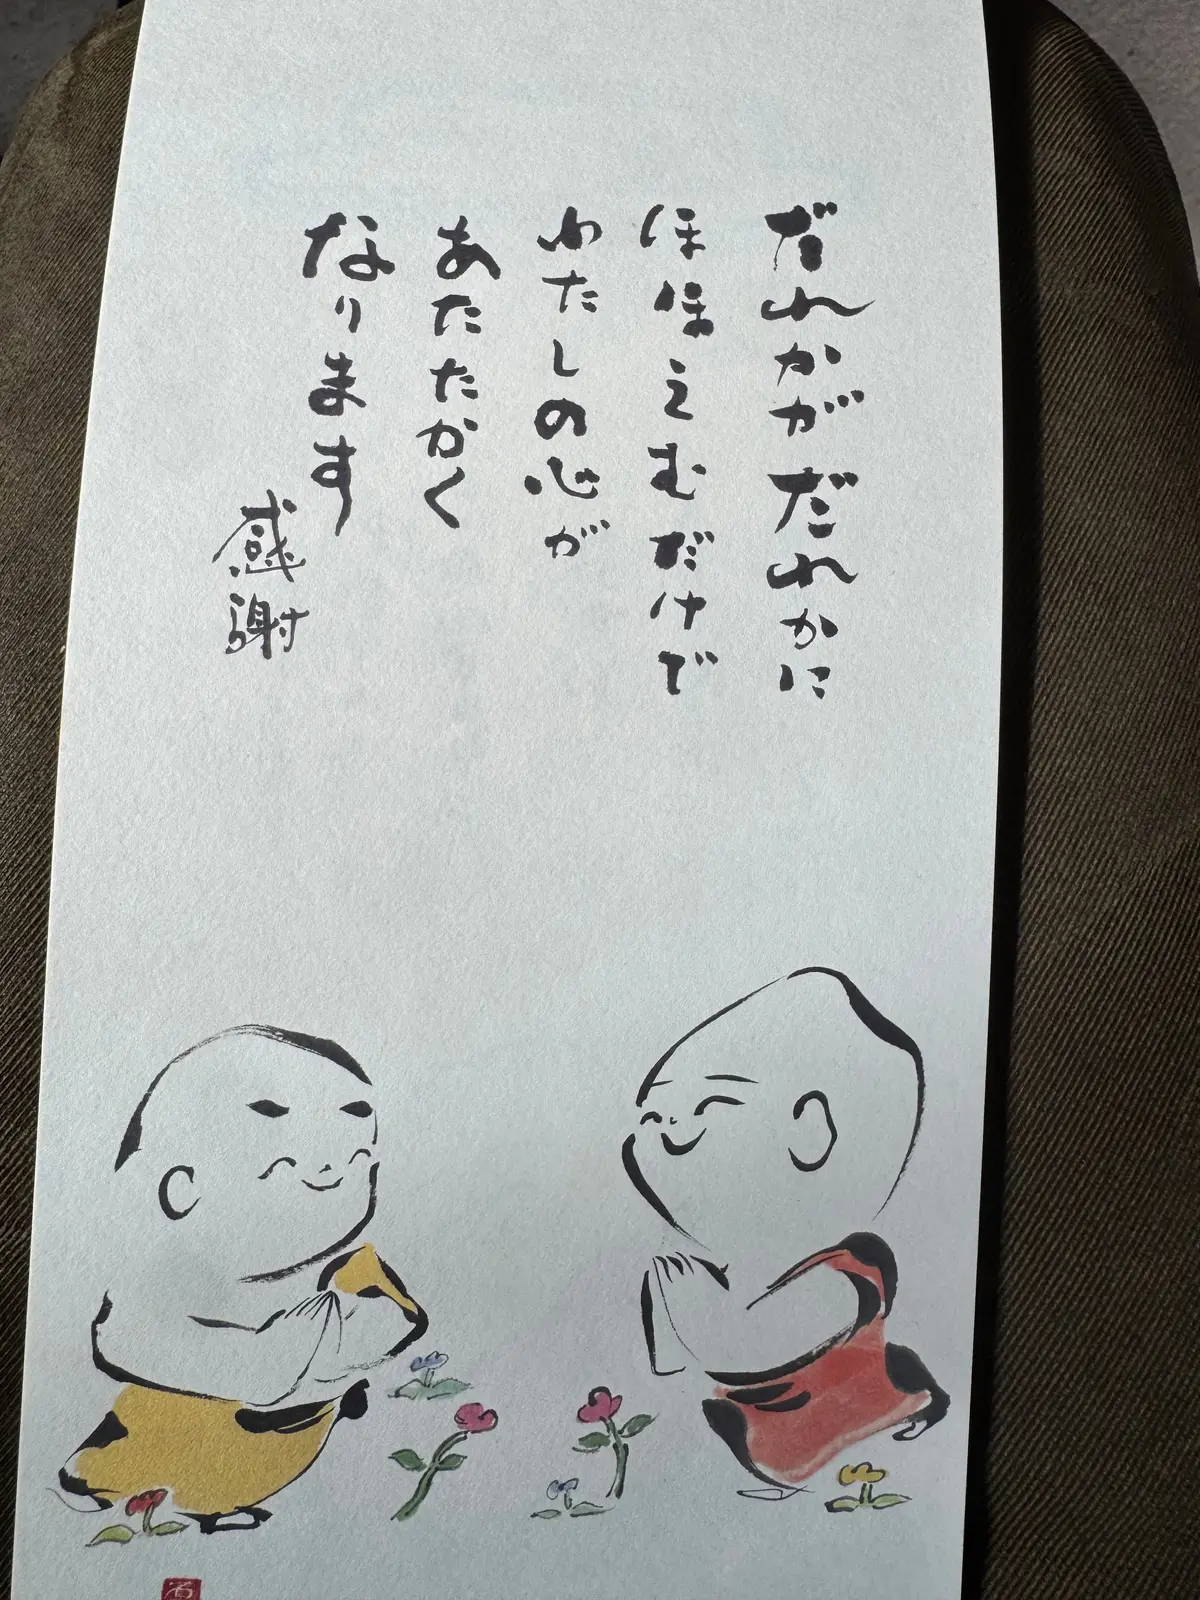 だれかがだれかに
ほほえむだけで
わたしの心が
あたたかく
なります
感謝